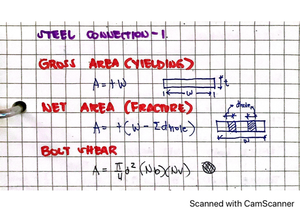 STEEL CONNECTION - 1.
GROSS AREA (YIELDING)
A = tW
t
W
NET AREA (FRACTURE)
dhole
A = t(W - Σdhole)
W
BOLT SHEAR
A = π/4 d² (Nb)(Nv)
Scanned with CamScanner